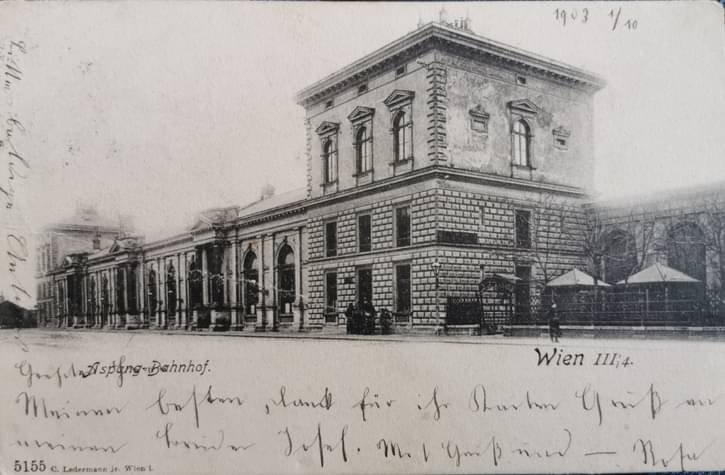 1903 1/10
Aspang-Bahnhof.
Wien III/4.
Meinen besten Dank für ihr Karten Gruß an
meinen Bruder Josef. Mit Gruß und — Rosa
5155 C. Ledermann jr. Wien I.